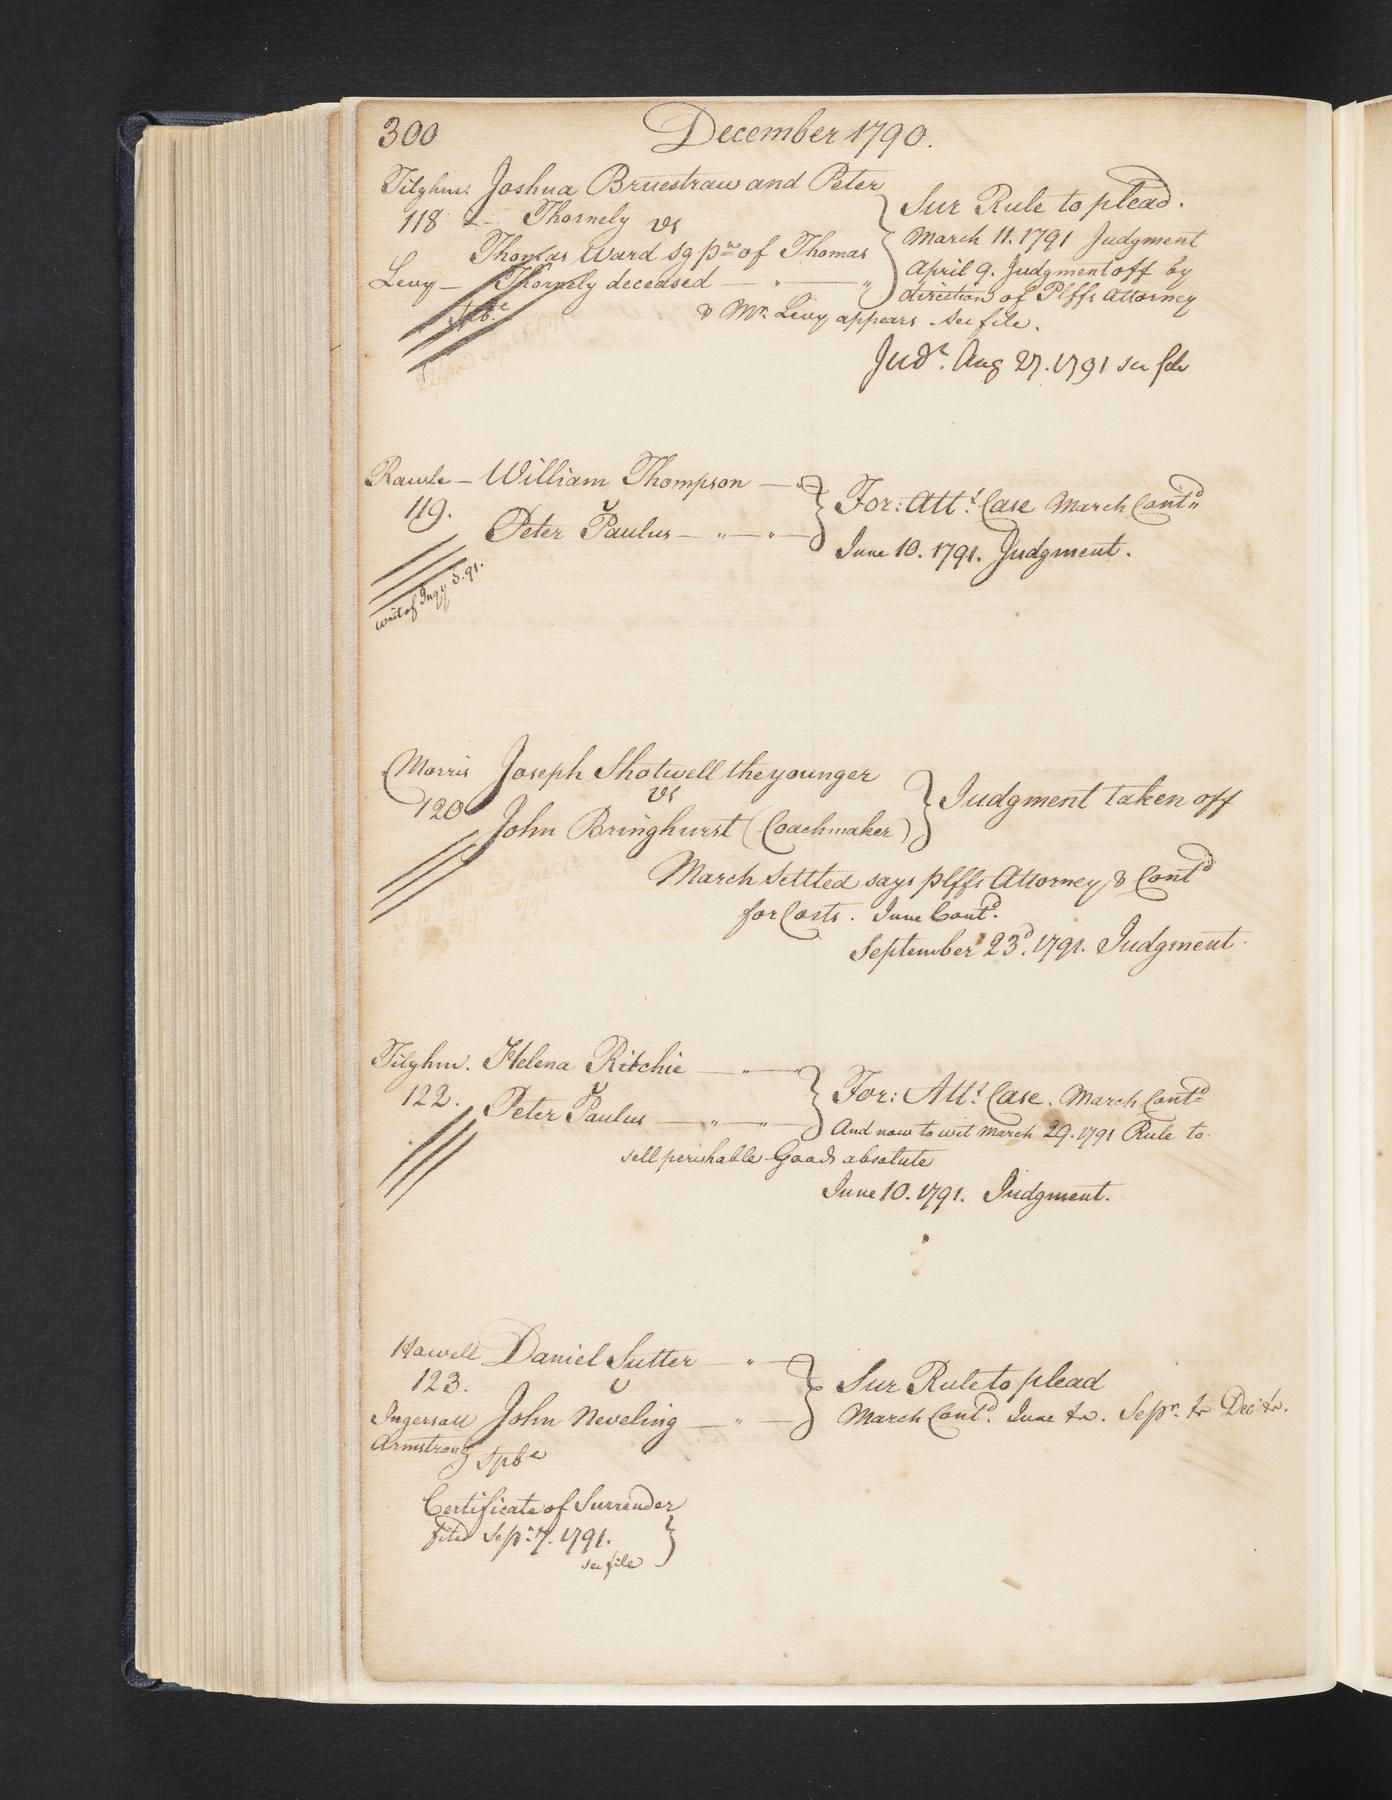 300 December 1790.
Tilghm. Joshua Bruestraw and Peter
118 Thornely vs
Thomas Ward sg pr of Thomas
Levy — Thornely deceased
spbe
Sur Rule to plead.
March 11. 1791 Judgment
April 9. Judgment off by
direction of Plffs Attorney
& Mr. Levy appears. see file.
Judt. Aug 27. 1791 see file
Rawle — William Thompson
119. v
Peter Paulus
writ of Inqy 5. 91.
For: Attt. Case March Contd
June 10. 1791. Judgment.
Morris Joseph Shotwell the younger
120 vs
John Bringhurst (Coachmaker)
Judgment taken off
March settled says plffs Attorney, & Contd
for Costs. June Contd.
September 23d. 1791. Judgment.
Tilghm. Helena Ritchie
122. v
Peter Paulus
For: Attt. Case. March Contd
And now to wit March 29. 1791 Rule to
sell perishable Goods absolute
June 10. 1791. Judgment.
Howell Daniel Sutter
123. v
Ingersoll John Neveling
Armstrong spbe
Sur Rule to plead
March Contd. June do. Sepr. do Decr do.
Certificate of Surrender
filed Sepr. 7. 1791.
see file